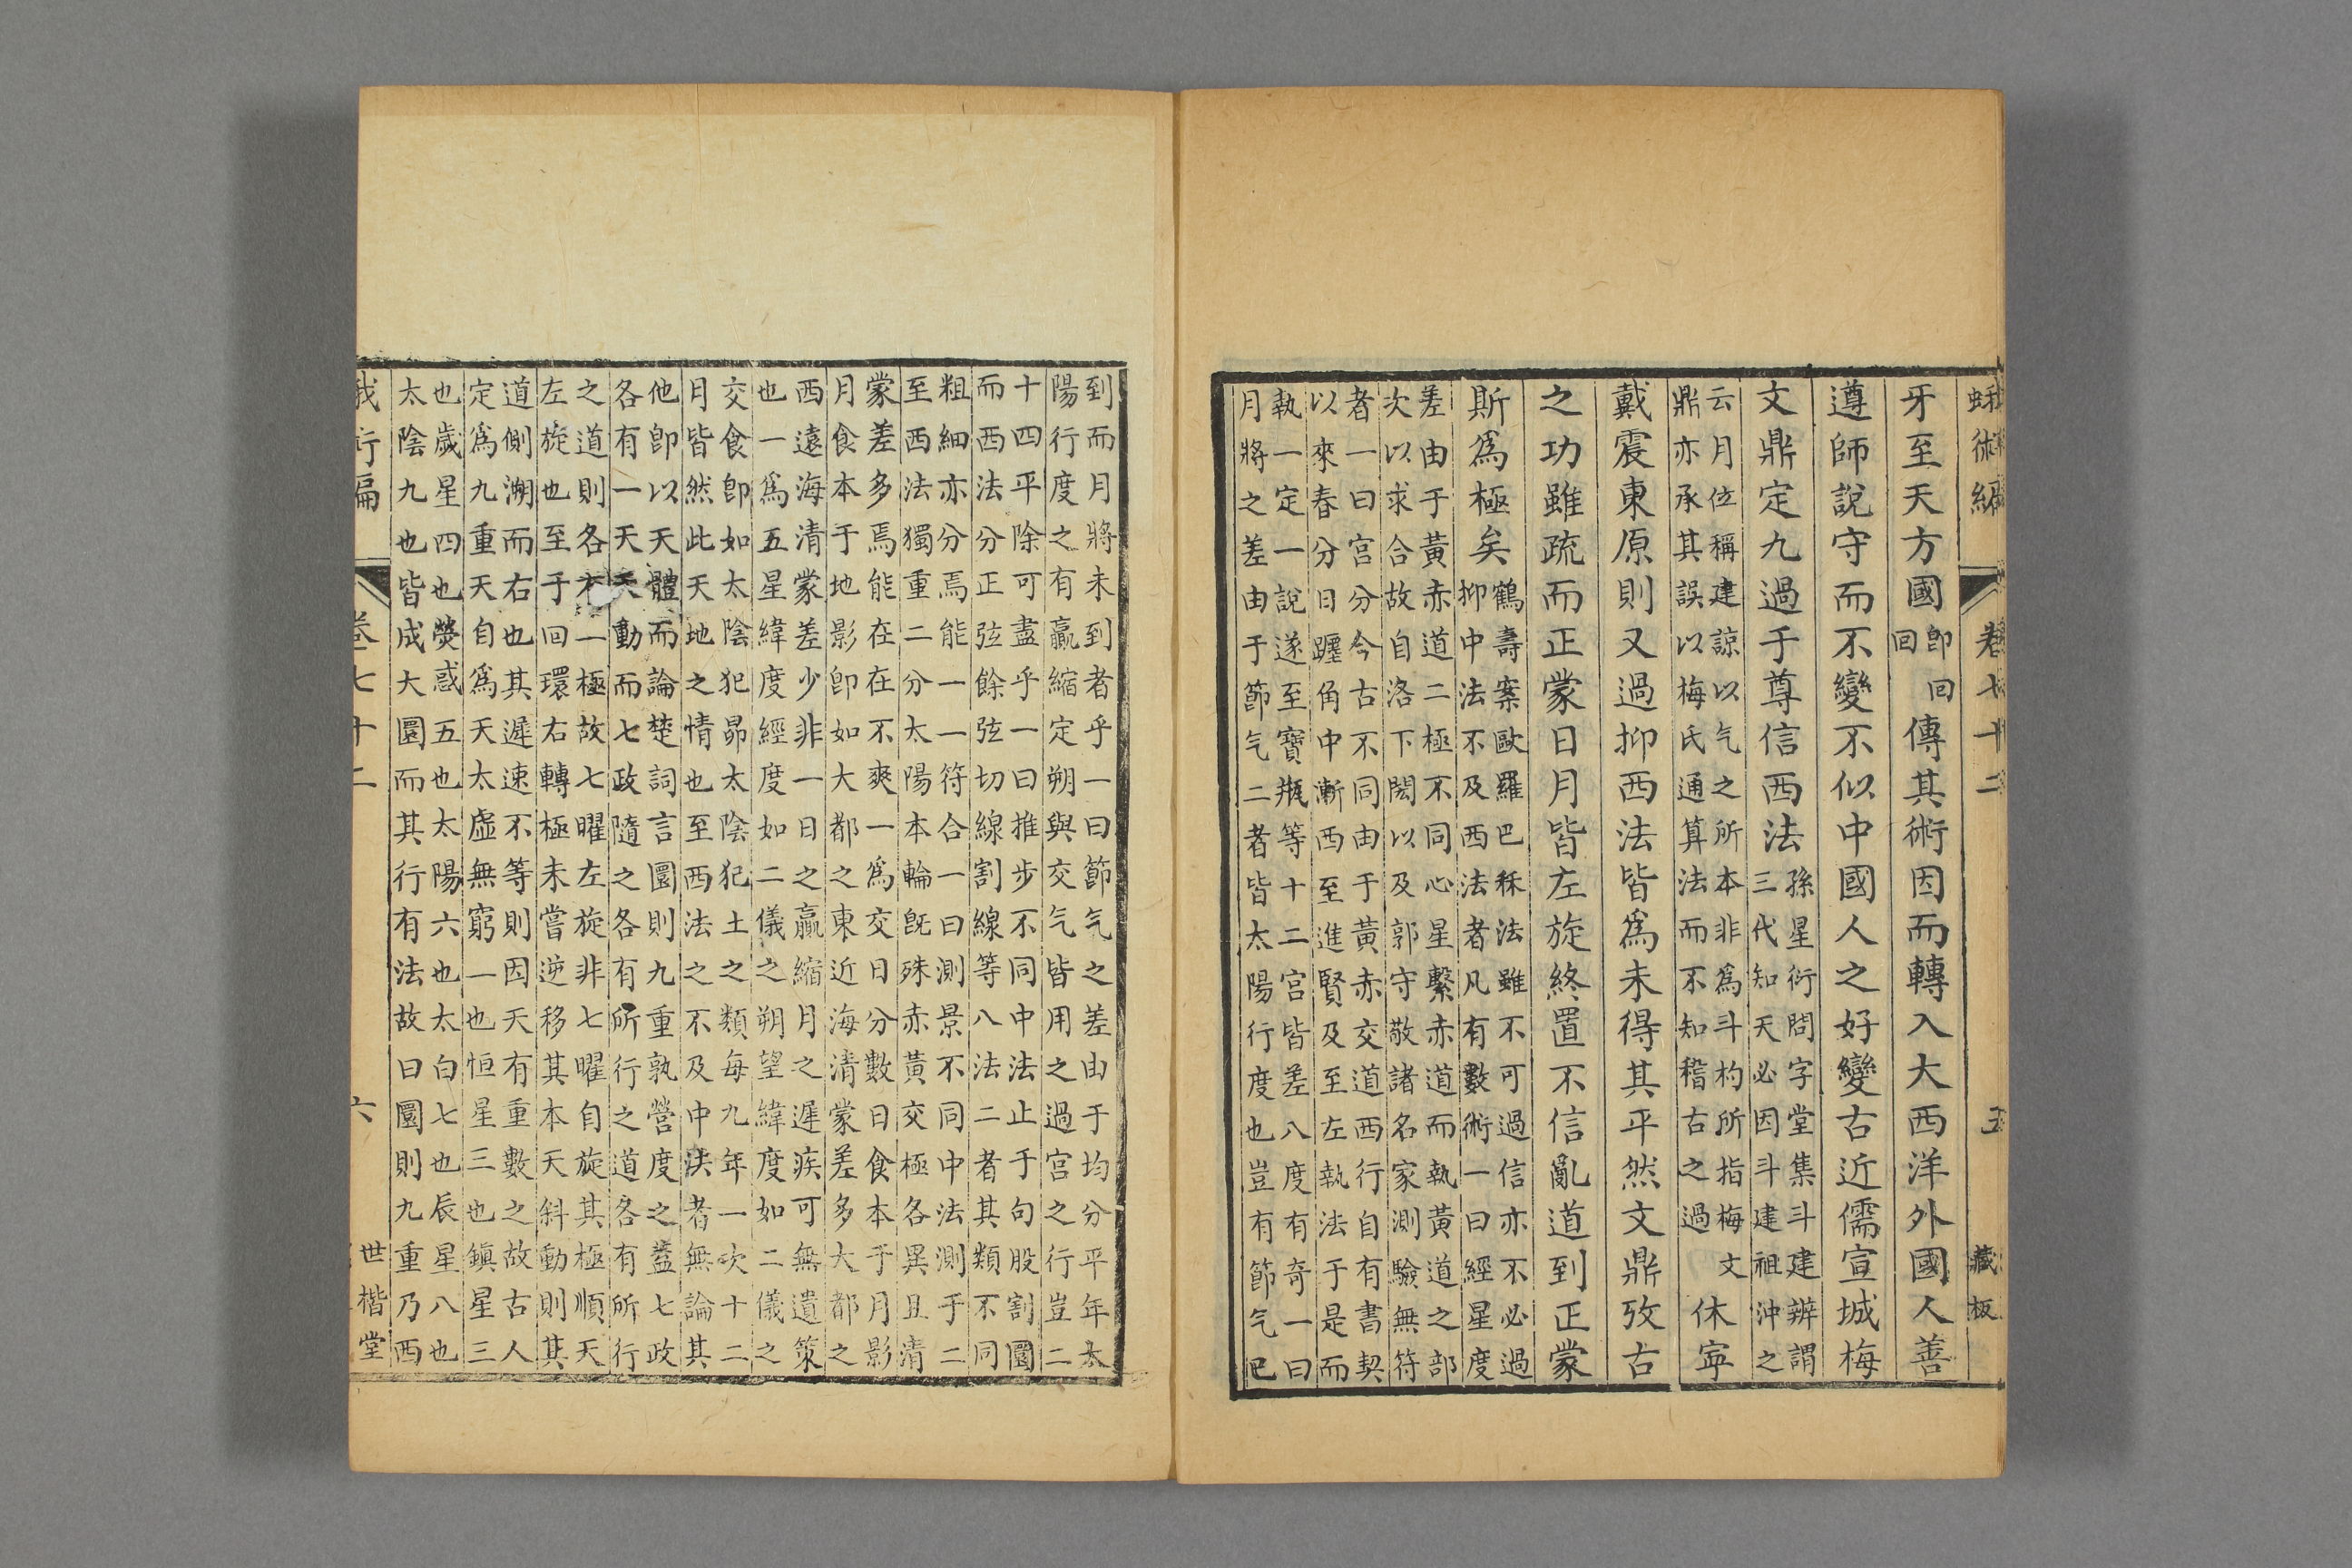 蛾術編 卷七十二 五 藏板
牙至天方國卽回回傳其術因而轉入大西洋外國人善
遵師說守而不變不似中國人之好變古近儒宣城梅
文鼎定九過于尊信西法
孫星衍問字堂集斗建辨謂
三代知天必因斗建祖沖之
云月位稱建諒以气之所本非爲斗杓所指梅文
鼎亦承其誤以梅氏通算法而不知稽古之過
休寧
戴震東原則又過抑西法皆爲未得其平然文鼎攷古
之功雖疏而正蒙日月皆左旋終置不信亂道到正蒙
斯爲極矣
鶴壽案歐羅巴秝法雖不可過信亦不必過
抑中法不及西法者凡有數術一曰經星度
差由于黃赤道二極不同心星繫赤道而執黃道之部
次以求合故自洛下閎以及郭守敬諸名家測驗無符
者一曰宮分今古不同由于黃赤交道西行自有書契
以來春分日躔角中漸西至進賢及至左執法于是而
執一定一說遂至寶瓶等十二宮皆差八度有奇一曰
月將之差由于節气二者皆太陽行度也豈有節气已
到而月將未到者乎一曰節气之差由于均分平年太
陽行度之有贏縮定朔與交气皆用之過宮之行豈二
十四平除可盡乎一曰推步不同中法止于句股割圜
而西法分正弦餘弦切線割線等八法二者其類不同
粗細亦分焉能一一符合一曰測景不同中法測于二
至西法獨重二分太陽本輪旣殊赤黃交極各異且清
蒙差多焉能在在不爽一爲交日分數日食本于月影
月食本于地影卽如大都之東近海清蒙差多大都之
西遠海清蒙差少非一日之贏縮月之遲疾可無遺策
也一爲五星緯度經度如二儀之朔望緯度如二儀之
交食卽如太陰犯昴太陰犯土之類每九年一次十二
月皆然此天地之情也至西法之不及中法者無論其
他卽以天體而論楚詞言圜則九重孰營度之蓋七政
各有一天天動而七政隨之各有所行之道各有所行
之道則各本一極故七曜左旋非七曜自旋其極順天
左旋也至于回環右轉極未嘗逆移其本天斜動則其
道側溯而右也其遲速不等則因天有重數之故古人
定爲九重天自爲天太虛無窮一也恒星三也鎭星三
也歲星四也熒惑五也太陽六也太白七也辰星八也
太陰九也皆成大圜而其行有法故曰圜則九重乃西
蛾術編 卷七十二 六 世楷堂